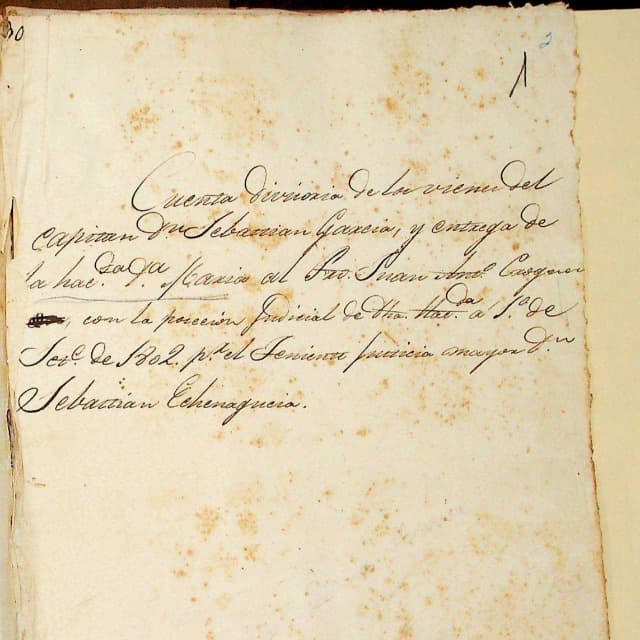 30
2
1
Cuenta divisoria de los vienes del
capitan Dn Sebastian Garcia, y entrega de
la hac.da Da. Maria al Pro. Juan
, con la posecion Judicial de dha. Hac.da a 1º. de
Sere. de 1802. pr. el Teniente Justicia mayor Dn
Sebastian Echenagucia.